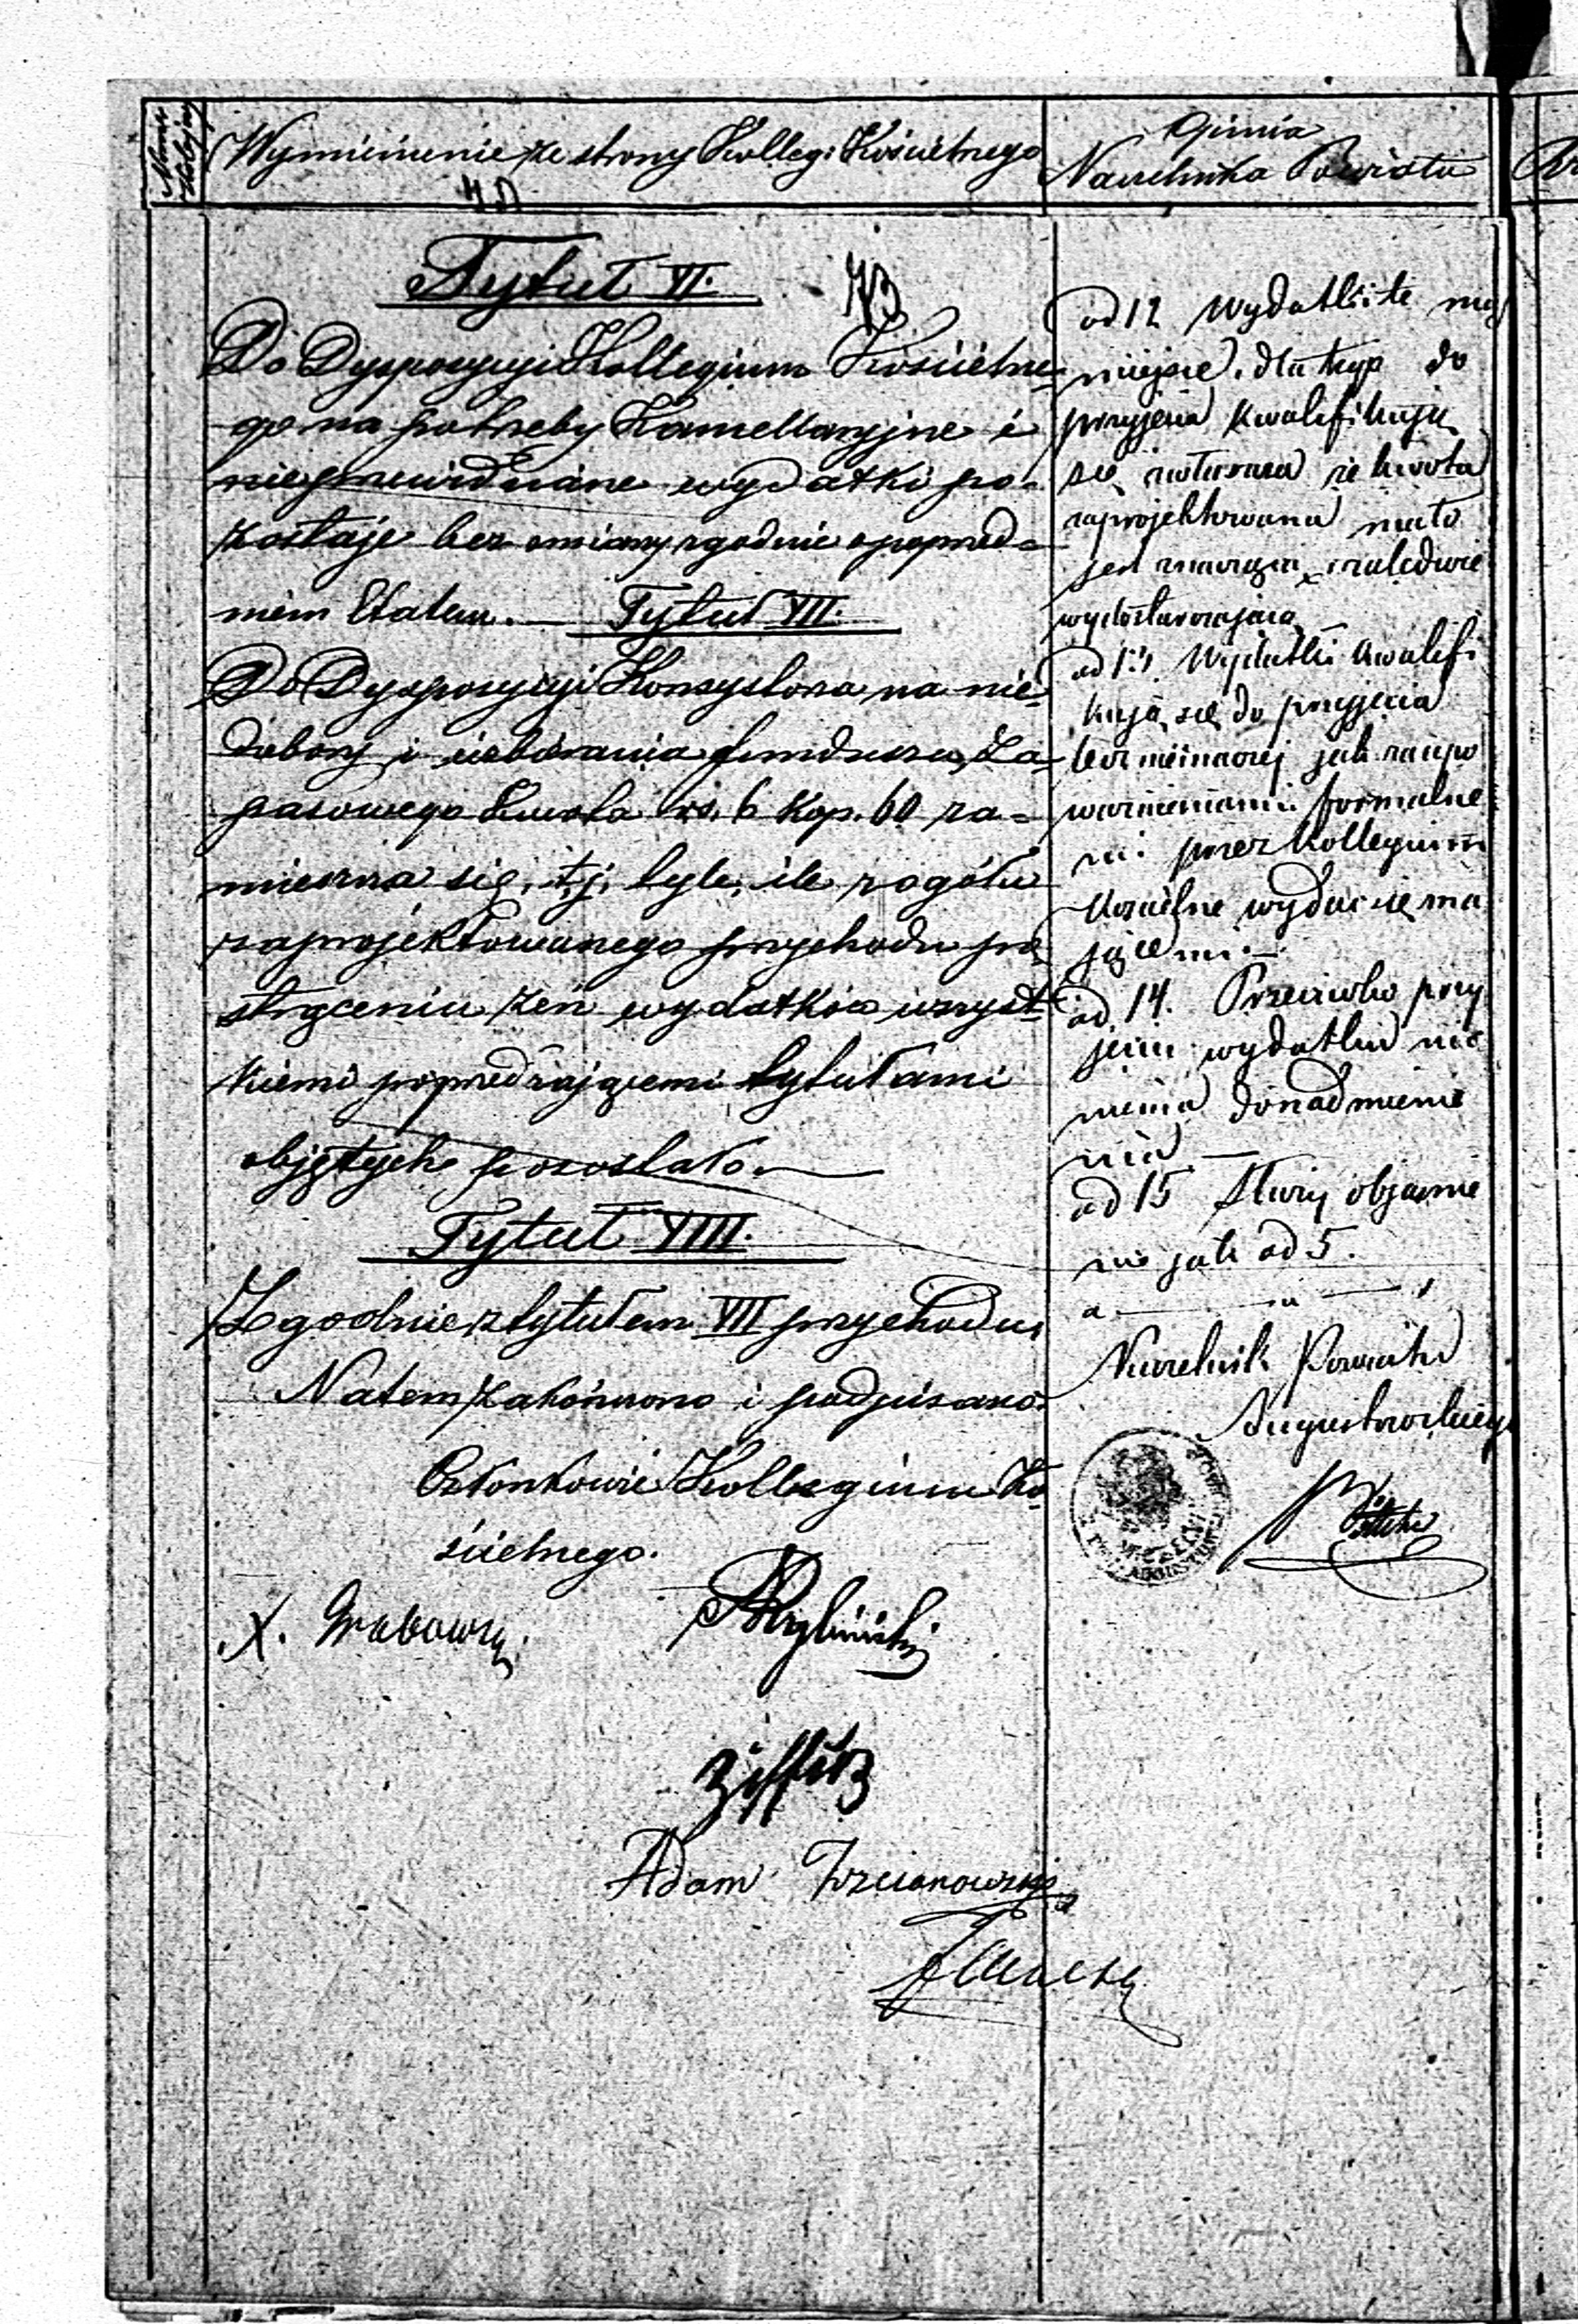 Numer kolejny
Wymienienie ze strony Kolleg: Kościelnego
Opinia
Naczelnika Powiatu
Tytuł VI.
73
Do Dyspozycyi Kollegium Kościelne-
go na potrzeby Kancellaryjne i
nieprzewidziane wydatki po-
zostaje bez zmiany zgodnie z poprzed-
niem Etatem. — Tytuł VII.
Do Dyspozycyi Konsystorza na nie-
dobory i uzbierania funduszu Za-
pasowego kwota rs. 6 kop. 60 za-
mieszcza się, t.j. tyle, ile z ogółu
zaprojektowanego przychodu po
strąceniu zeń wydatków wszyst-
kiemi poprzedzającemi tytułami
objętych pozostało.
Tytuł VIII.
Zgodnie z tytułem VII przychodu,
Natem zakończono i podpisano.
Członkowie Kollegium Ko-
ścielnego.
X. Grabowsky.
Adam Trzcianowski
od 12 Wydatki te mają
miejsce, dla tego do
przyjęcia kwalifikują
się, zwłaszcza że kwota
zaprojektowana mało
jest znaczącą, zaledwie
wystarczająca
od 13. Wydatki kwalifi
kują się do przyjęcia
lecz nieinaczej jak za upo
ważnieniami formalne
mi przez Kollegium
Kościelne wydać się ma
jącemi. —
od 14. Przeciwko przy
jęciu wydatku nic
niema do nadmienie
nia —
od 15 Służy objaśnie
nie jak od 5.
Naczelnik Powiatu
Augustowskiego